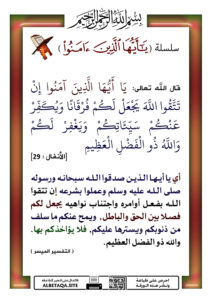 بسم الله الرحمن الرحيم
سلسلة ﴿ يَٰٓأَيُّهَا ٱلَّذِينَ ءَامَنُوٓا۟ ﴾
قال الله تعالى: يَا أَيُّهَا الَّذِينَ آمَنُوا إِنْ
تَتَّقُوا اللَّهَ يَجْعَلْ لَكُمْ فُرْقَانًا وَيُكَفِّرْ
عَنْكُمْ سَيِّئَاتِكُمْ وَيَغْفِرْ لَكُمْ
وَاللَّهُ ذُو الْفَضْلِ الْعَظِيمِ
[الأنفال : 29]
أي يا أيها الذين صدقوا الله سبحانه ورسوله
صلى الله عليه وسلم وعملوا بشرعه إن تتقوا
الله بفعل أوامره واجتناب نواهيه يجعل لكم
فصلا بين الحق والباطل، ويمح عنكم ما سلف
من ذنوبكم ويسترها عليكم، فلا يؤاخذكم بها.
والله ذو الفضل العظيم.
( التفسير الميسر )
ALBETAQA.SITE
احرص على طباعة
ونشر هذه الورقة